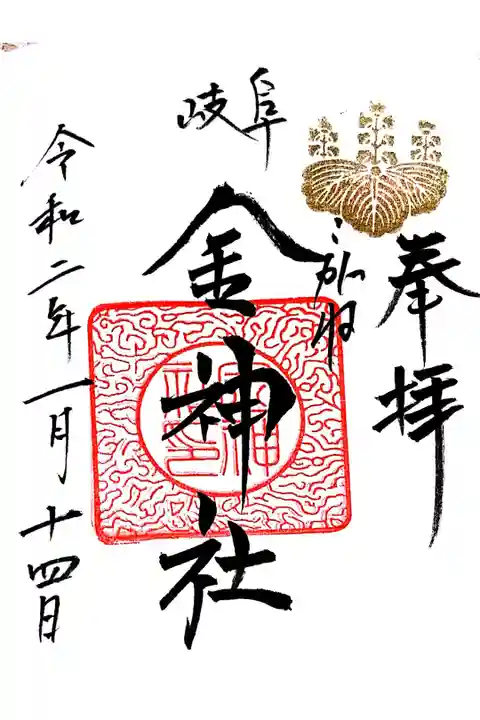 奉拝
岐阜
金神社
令和二年一月十四日